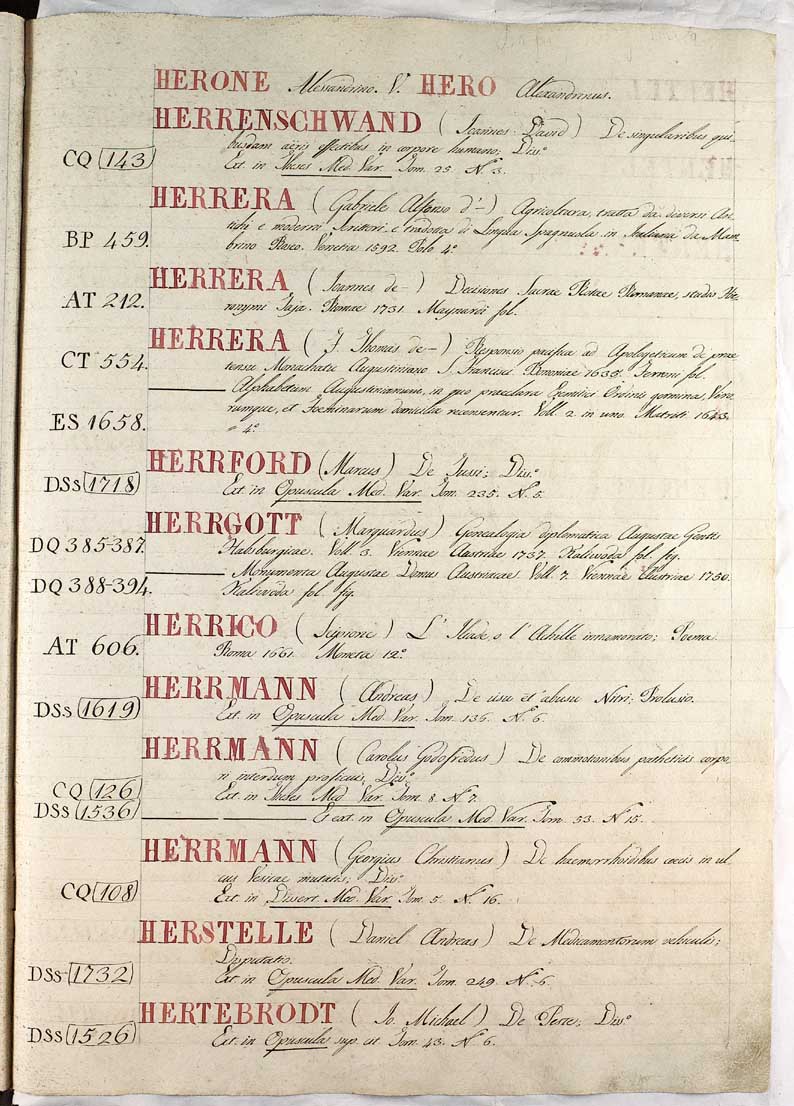 HERONE Alessandrino. V. HERO Alexandrinus.
HERRENSCHWAND (Joannes David) De singularibus qui-
busdam aëris effectibus in corpore humano; Diss.º
CQ 143 Ext. in Theses Med. Var. Tom. 25. Nº 3.
HERRERA (Gabriele Alfonso d'—) Agricoltura, tratta da diversi An-
tichi e moderni Scrittori: e tradotta di Lingua Spagnuola in Italiana da Mam-
BP 459. brino Roseo. Venetia 1592. Polo 4º
HERRERA (Joannes de—) Decisiones Sacrae Rotae Romanae, studio Hie-
AT 212. ronymi Romae 1731. Maynardi fol.
HERRERA (F. Thomas de—) Responsio pacifica ad Apologeticum de prae-
CT 554. tenso Monachatu Augustiniano S. Francisci. Bononiae 1635. Ferroni fol.
——— Alphabetum Augustinianum, in quo praeclara Eremitici Ordinis germina, Viro-
rumque, et Foeminarum domicilia recensentur. Voll. 2 in uno. Matriti 1643.
ES 1658. 4º
HERRFORD (Marcus) De Tussi; Diss.º
DSs 1718 Ext. in Opuscula Med. Var. Tom. 235. Nº 5.
HERRGOTT (Marquardus) Genealogia diplomatica Augustae Gentis
DQ 385-387. Habsburgicae. Voll. 3. Viennae Austriae 1737. Kaliwoda fol. fig.
——— Monumenta Augustae Domus Austriacae. Voll. 7. Viennae Austriae 1750.
DQ 388-394. Kaliwoda fol. fig.
HERRICO (Scipione) L' Iliade o l'Achille innamorato; Poema.
AT 606. Roma 1661. Moneta 12º
HERRMANN (Andreas) De usu et abusu Nitri; Prolusio.
DSs 1619 Ext. in Opuscula Med. Var. Tom. 136. Nº 6.
HERRMANN (Carolus Godofredus) De commotionibus patheticis corpo-
ri interdum proficuis; Diss.º
CQ 126 Ext. in Theses Med. Var. Tom. 8. Nº 7.
DSs 1536 ——— ——— Et ext. in Opuscula Med. Var. Tom. 53. Nº 15.
HERRMANN (Georgius Christianus) De haemorrhoidibus coecis in ul-
cus Vesicae mutatis; Diss.º
CQ 108 Ext. in Dissert. Med. Var. Tom. 5. Nº 16.
HERSTELLE (Daniel Andreas) De Medicamentorum vehiculis;
Disputatio.
DSs 1732 Ext. in Opuscula Med. Var. Tom. 249. Nº 6.
HERTEBRODT (Jo. Michael) De Peste; Diss.º
DSs 1526 Ext. in Opuscula sup. cit. Tom. 43. Nº 6.